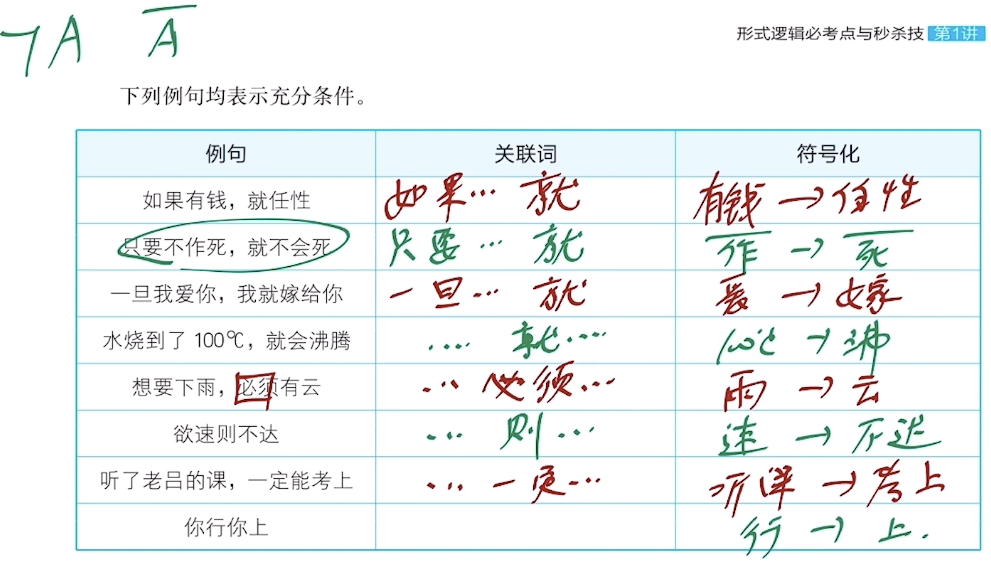 ¬A A̅
形式逻辑必考点与秒杀技 第1讲
下列例句均表示充分条件。
例句 关联词 符号化
如果有钱，就任性 如果… 就 有钱→任性
只要不作死，就不会死 只要… 就 作̅→死̅
一旦我爱你，我就嫁给你 一旦… 就 爱→嫁
水烧到了 100℃，就会沸腾 …就… 100℃→沸
想要下雨，必须有云 …必须… 雨→云
欲速则不达 …则… 速→不达
听了老吕的课，一定能考上 …一定… 听课→考上
你行你上 行→上.